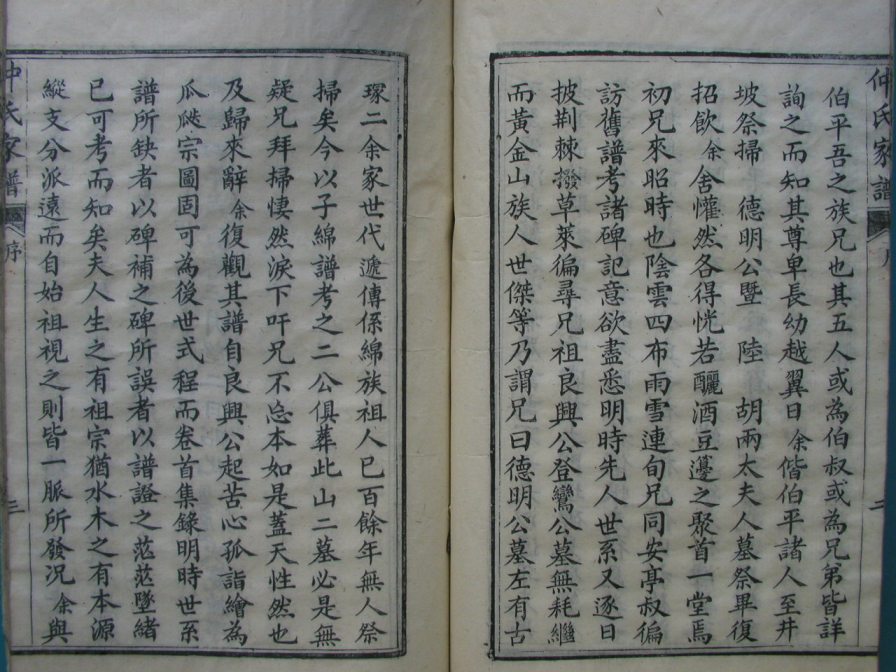 仲氏家譜 序 二
伯平吾之族兄也其五人或為伯叔或為兄弟皆詳
詢之而知其尊卑長幼越翼日余偕伯平諸人至井
坡祭掃 德明公暨 陸 胡兩太夫人墓祭畢復
招飲余舍懽然各得恍若釃酒豆籩之聚首一堂焉
初兄來昭時也陰雲四布雨雪連旬兄同安亭叔徧
訪舊譜考諸碑記意欲盡悉明時先人世系又逐日
披荆棘撥草萊徧尋兄祖良興公登鸞公墓無耗繼
而黃金山族人世傑等乃謂兄曰德明公墓左有古
塚二余家世代遞傳係綿族祖人已百餘年無人祭
掃矣今以子綿譜考之二公俱葬此山二墓必是無
疑兄拜掃悽然淚下吁兄不忘本如是蓋天性然也
及歸來辭余復觀其譜自良興公起苦心孤詣繪為
瓜瓞宗圖固可為後世式程而卷首集錄明時世系
譜所缺者以碑補之碑所誤者以譜證之茫茫墜緒
已可考而知矣夫人生之有祖宗猶水木之有本源
縱支分派遠而自始祖視之則皆一脈所發況余與
仲氏家譜 序 三